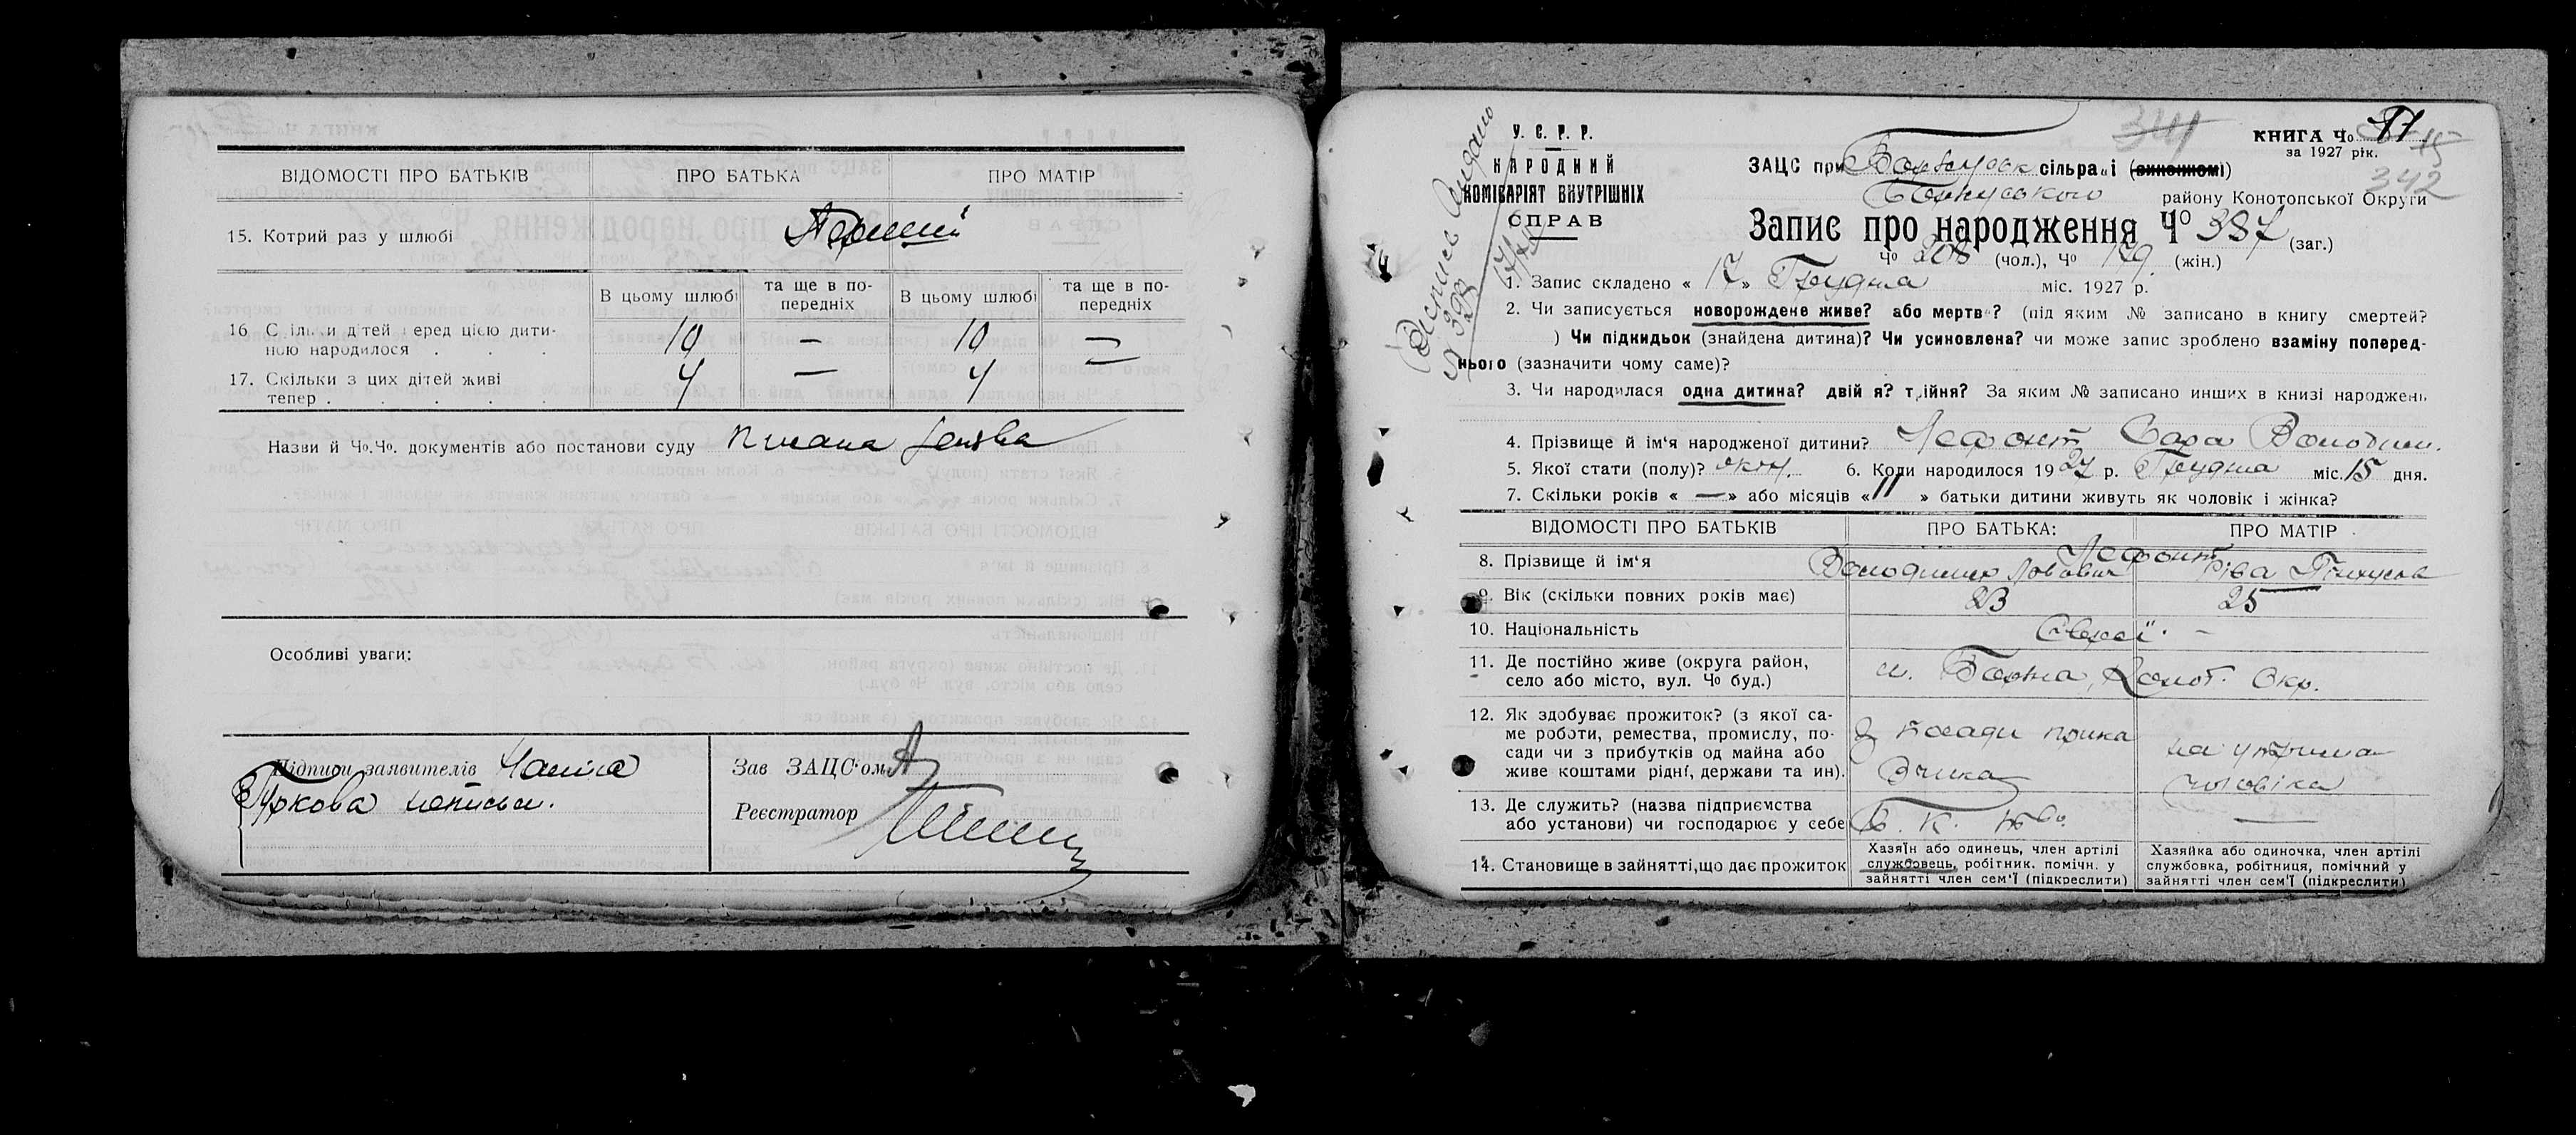 ВІДОМОСТІ ПРО БАТЬКІВ ПРО БАТЬКА ПРО МАТІР
15. Котрий раз у шлюбі Перший
В цьому шлюбі та ще в по-передніх В цьому шлюбі та ще в по-передніх
16. Скільки дітей перед цією дити-
ною народилося . . . 10 — 10 —
17. Скільки з цих дітей живі
тепер . . . . . 4 — 4 —
Назви й Чо.Чо. документів або постанови суду заява
Особливі уваги:
Підписи заявителів
Зав ЗАЦС'ом
Реєстратор
У. С. Р. Р.
НАРОДНИЙ
КОМІСАРІЯТ ВНУТРІШНІХ
СПРАВ
341
КНИГА Чо
за 1927 рік.
342
ЗАЦС при сільраді (виконкомі)
Борзнянського району Конотопської Округи
Запис про народження Чо 387 (заг.)
Чо 208 (чол.), Чо 179 (жін.)
1. Запис складено « 17 » Грудня міс. 1927 р.
2. Чи записується новорождене живе? або мертве? (під яким № записано в книгу смертей?
) Чи підкидьок (знайдена дитина)? Чи усиновлена? чи може запис зроблено взаміну поперед-
нього (зазначити чому саме)?
3. Чи народилася одна дитина? двійня? трійня? За яким № записано инших в книзі народжень
4. Прізвище й ім'я народженої дитини? Сара Володим.
5. Якої стати (полу)? жін. 6. Коли народилося 1927 р. Грудня міс. 15 дня.
7. Скільки років « — » або місяців « 11 » батьки дитини живуть як чоловік і жінка?
ВІДОМОСТІ ПРО БАТЬКІВ ПРО БАТЬКА: ПРО МАТІР
8. Прізвище й ім'я Володимир Ріва
9. Вік (скільки повних років має) 23 25
10. Національність Євреї
11. Де постійно живе (округа район,
село або місто, вул. Чо буд.) м. Борзна, Конот. Окр.
12. Як здобуває прожиток? (з якої са-
ме роботи, ремества, промислу, по-
сади чи з прибутків од майна або
живе коштами рідні, держави та ин).
З посади прика
зчика
на утрима
чоловіка
13. Де служить? (назва підприємства
або установи) чи господарює у себе —
14. Становище в зайнятті, що дає прожиток
Хазяїн або одинець, член артілі
службовець, робітник. помічн. у
зайнятті член сем'ї (підкреслити)
Хазяйка або одиночка, член артілі
службовка, робітниця, помічний у
зайнятті член сем'ї (підкреслити)